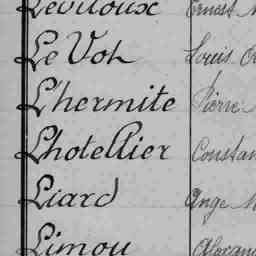 Leviloux Ernest
Le Voh Louis
L'hermite Pierre
Lhotellier Constan
Liard Ange M
Limou Alexan